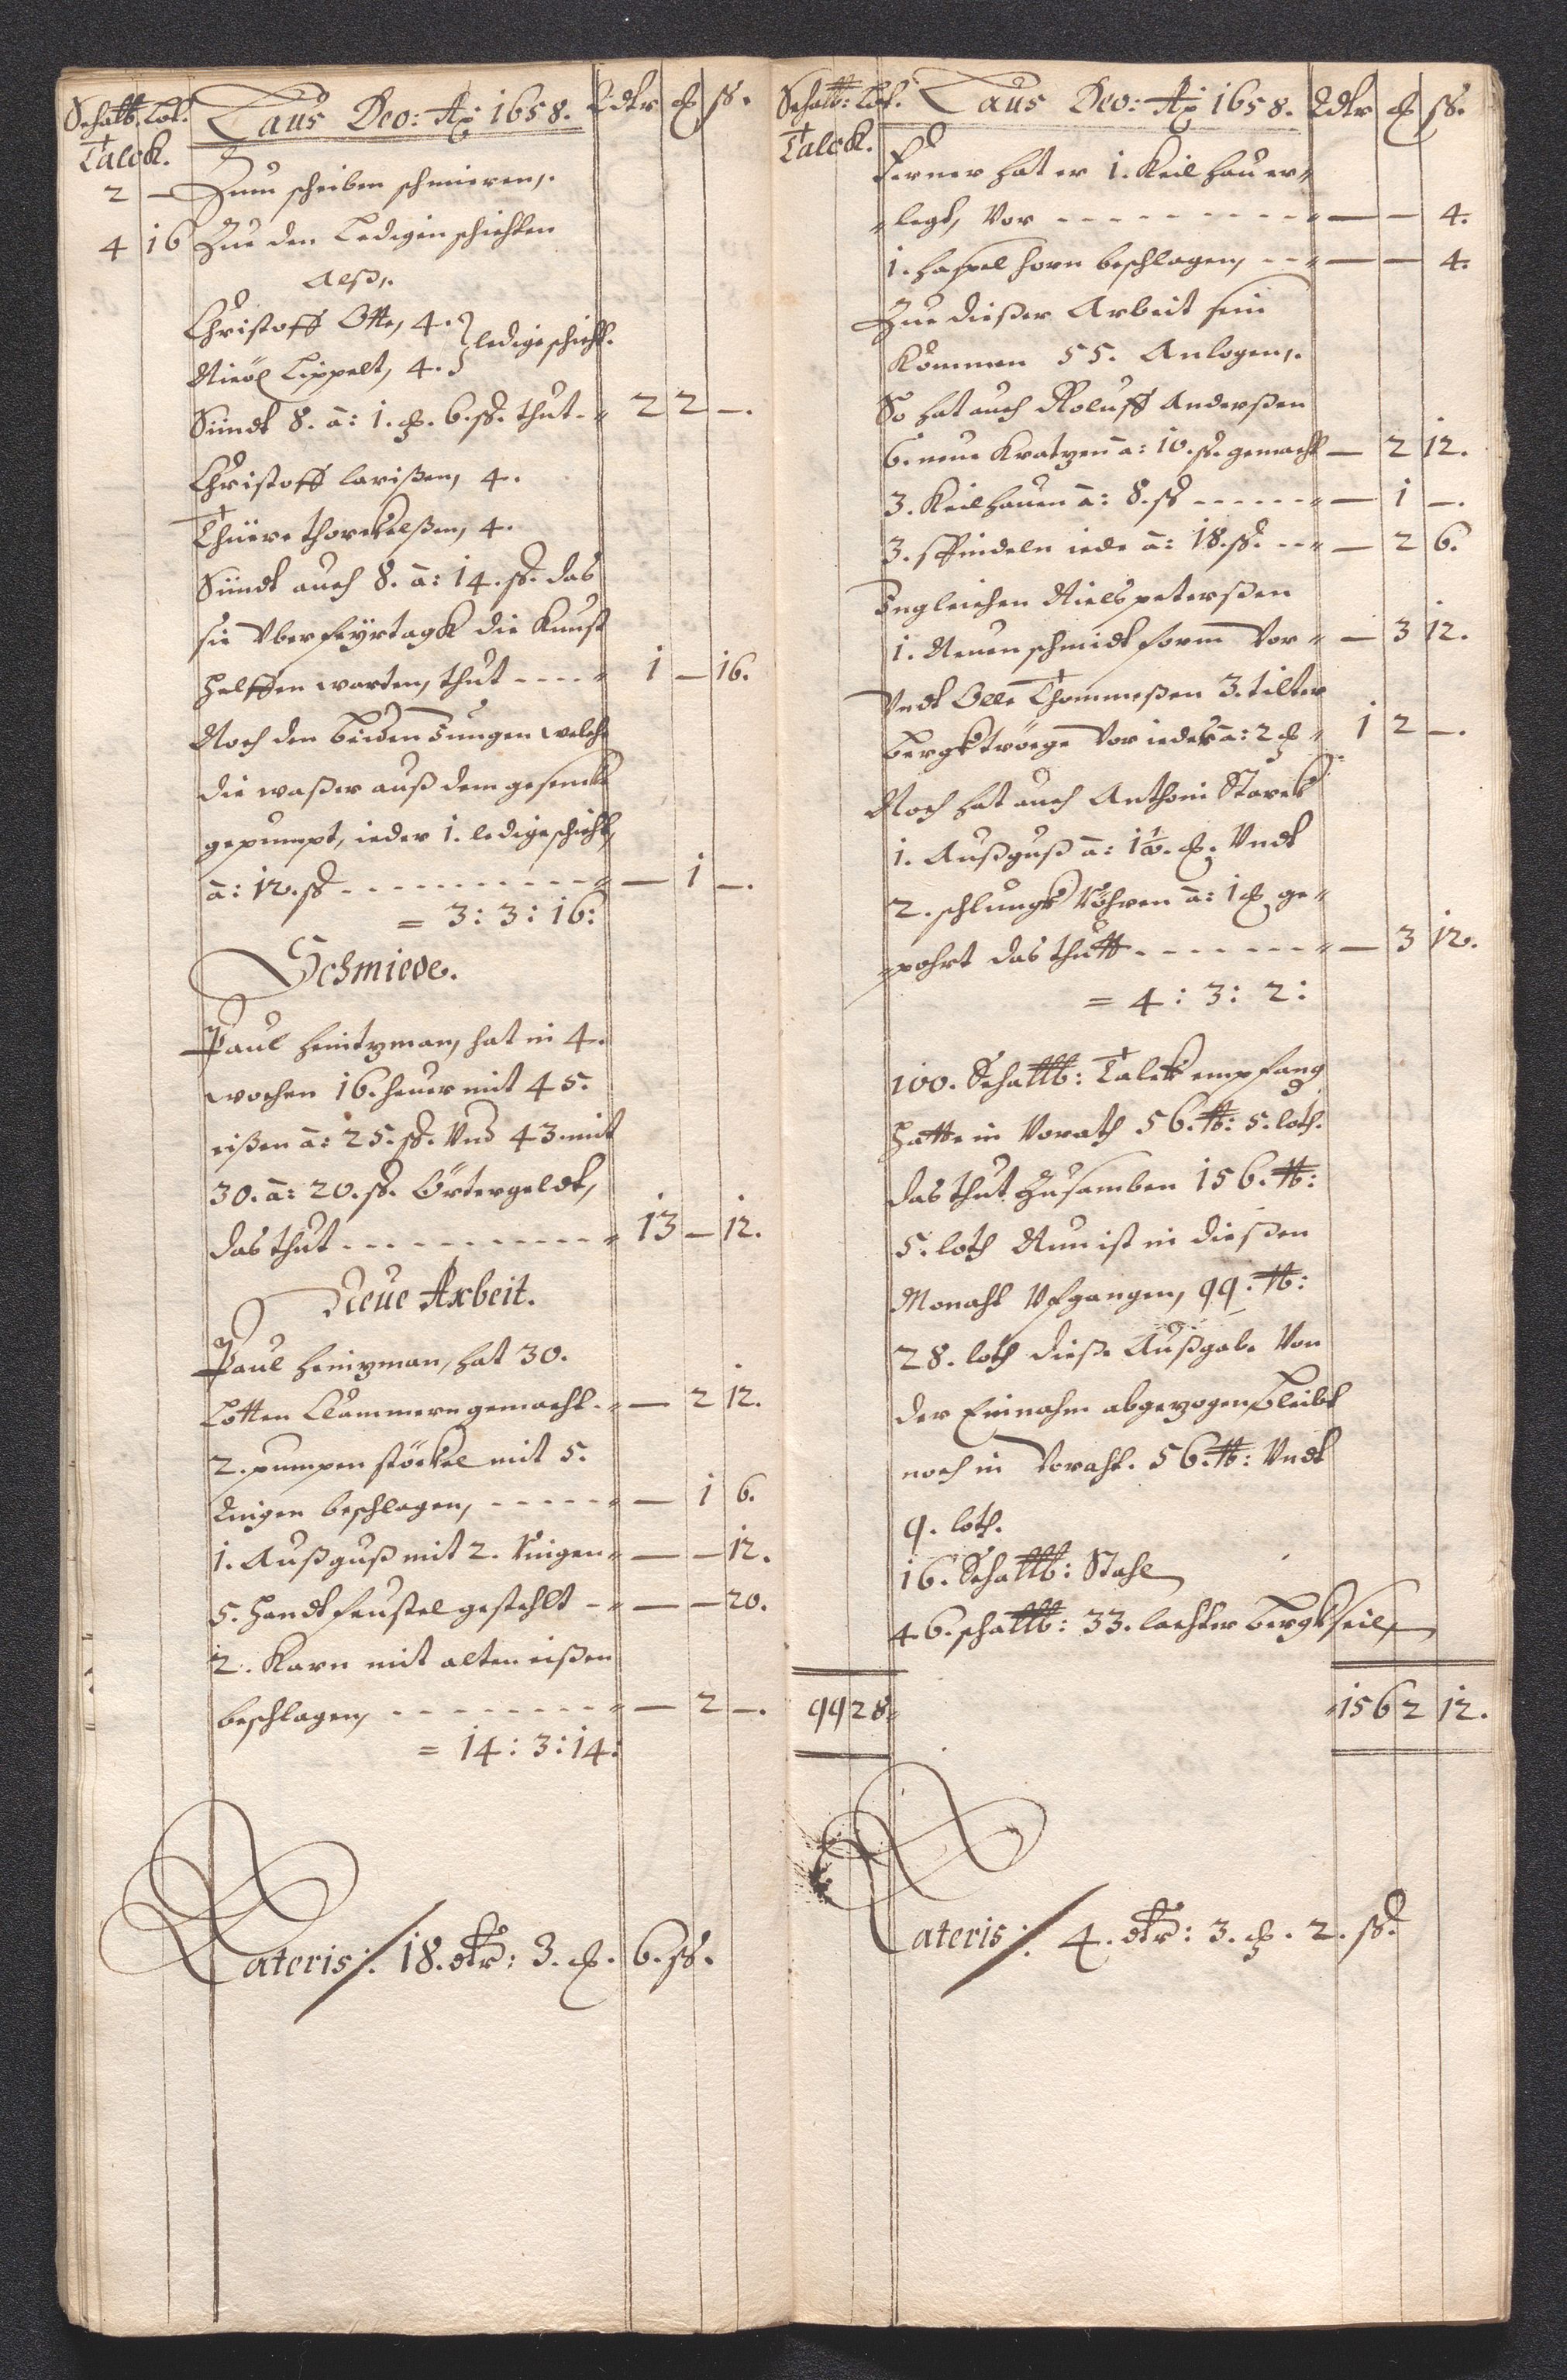 Schalb: Lot. Laus Deo: Aō 1658. Rdlr ꝗ ß.
Talck.
2 — Zum scheiben schmieren,.
4 16 Zue den Ledigen schichten
Alß,.
Christoff Otte, 4. } ledige schicht.
Nicol Lippelt, 4.
Sindt 8. â: 1. ꝗ. 6. ß. thut - 2 2 —.
Christoff larißen, 4.
Thüere thorckelßen, 4.
Sindt auch 8. â: 14. ß. das
sie Vber feyrtagk die Kunst
helffen warten, thut - - - - 1 — 16.
Noch den beiden Jungen welche
die waßer auß dem gesencke
gepumpt, ieder 1. ledige schicht,
â: 12. ß - - - - - - - - — 1 —.
= 3: 3: 16:
Schmiede.
Paul heintzman, hat in 4.
wochen 16. heuer mit 45.
eißen â: 25. ß. Vnd 43. mit
30. â: 20. ß. Örtergeldt,
das thut - - - - - - - - 13 — 12.
Neue Arbeit.
Paul heinzman, hat 30.
Lotten Clammern gemacht - — 2 12.
2. pumpen stöckel mit 5.
Ringen beschlagen, - - - - - — 1 6.
1. Außguß mit 2. Ringen - — — 12.
5. handt feustel gestehlt - — — 20.
2. Karn mit alten eißen
beschlagen, - - - - - - - — 2 —.
= 14: 3: 14:
Lateris ./. 18. dlr: 3. ꝗ. 6. ß.
Schalb: Lot. Laus Deo: Aō 1658. Rdlr ꝗ ß.
Talck.
Ferner hat er 1. Keil hau er-
legt, Vor - - - - - - - - - — — 4.
1. haspel horn beschlagen, - - — — 4.
Zue dießer Arbeit sein
Kommen 55. Anlogen,.
So hat auch Roluff Anderßen
6. neue Kratzen â: 10. ß. gemacht — 2 12.
3. Keilhauen â: 8. ß - - - - - — 1 —.
3. spindeln iede â: 18. ß. - - — 2 6.
Ingleichen Niels peterßen
1. Neuen schmidt form Vor - — 3 12.
Vndt Olle Thommeßen 3. tilter
bergktröege Vor ieder â: 2 ꝗ - 1 2 —.
Noch hat auch Anthoni Starck
1. Außguß â: 1½. ꝗ. Vndt
2. schlungk Röhren â: 1 ꝗ ge-
pohrt das thutt - - - - - - - — 3 12.
= 4: 3: 2:
100. Schallb: Talck empfang
hatte in Vorath 56. lb: 5. loth.
das thut Zusamben 156. lb:
5. loth Nun ist in dießen
Monaht Vfgangen, 99. lb:
28. loth dieße Außgabe Von
der Einnahm abgezogen, bleibt
noch in Voraht. 56. lb: Vndt
9. loth.
16. Schallb: Stahl
46. schallb: 33. lachter bergkseil,
99 28 156 2 12.
Lateris ./. 4. dlr: 3. ꝗ. 2. ß.